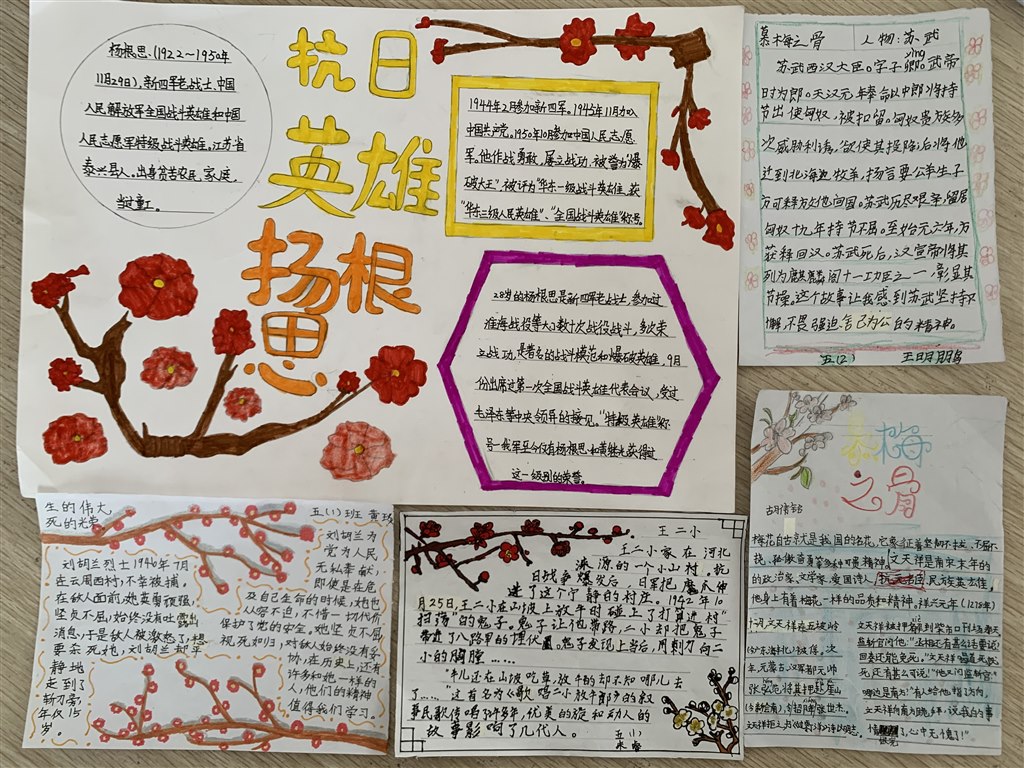 杨根思:(1922～1950年
11月29日),新四军老战士,中国
人民解放军全国战斗英雄和中国
人民志愿军特级战斗英雄,江苏省
泰兴县人。出身贫苦农民家庭,
当过童工。
抗日
英雄
杨根
思
1944年2月参加新四军。1945年11月加入
中国共产党。1950年10月参加中国人民志愿
军。他作战勇敢,屡立战功,被誉为"爆
破大王",被评为"华东一级战斗英雄,获
"华东三级人民英雄"、"全国战斗英雄"称号。
28岁的杨根思是新四军老战士,参加过
淮海战役等大小数十次战役战斗,多次荣
立战功,是著名的战斗模范和爆破英雄,9月
份出席过第一次全国战斗英雄代表会议,受过
毛泽东等中央领导的接见。"特级英雄"称
号一我军至今仅有杨根思和黄继光获得过
这一级别的荣誉。
慕梅之骨 人物:苏武
qīng
苏武西汉大臣。字子卿武帝
时为郎。天汉元年奉命以中郎将持
节出使匈奴,被扣留。匈奴贵族多
次威胁利诱,欲使其投降;后将他
迁到北海边牧羊,扬言要公羊生子
方可释放他回国。苏武历尽艰辛,留居
匈奴十九年持节不屈。至始元六年,方
获释回汉。苏武死后,汉宣帝将其
列为麒麟阁十一功臣之一,彰显其
节操。这个故事让我感到苏武坚持不
懈,不畏强迫舍己为公的精神。
五(2) 王明鹏
生的伟大,
死的光荣
五(1)班 黄
刘胡兰烈士1946年7月
在云周西村,不幸被捕,
在敌人面前,她英勇顽强,
坚贞不屈,始终没有吐露出
消息,于是敌人被激怒了,想
要杀死她,刘胡兰却平
静地
走到了
铡刀旁,
年仅15
岁。
刘胡兰为
党为人民
无私奉献,
即使是在危
及自己生命的时候,她也
从容不迫,不惜一切代价
保护了党的安全。她坚贞不屈
视死如归,对敌人始终没有妥
协,在历史上,还有
许多和她一样的
人,他们的精神
值得我们学习。
王二小
王二小家在河北
涞源的一个小山村,抗
日战争爆发后,日军把魔爪伸
进了这个宁静的村庄。1942年10
月25日,王二小在山坡上放牛时碰上了打算进村"
扫荡"的鬼子。鬼子让他带路,二小却把鬼子
带进了八路军的埋伏圈。鬼子发现上当后,用刺刀向二
小的胸膛……
"牛儿还在山坡吃草,放牛的却不知哪儿去
了……"这首名为《歌唱二小放牛郎》的叙
事民歌传唱多年,优美的旋律和动人的
故事影响了几代人。
五
慕梅
之骨
梅花自古就是我国的名花,它象征着坚韧不拔,不屈不
挠,的精神,文天祥是南宋末年的
的政治家,文学家,爱国诗人,抗元名臣,民族英雄,
他身上有着梅花一样的品质和精神。祥兴元年(1278年)
十二月,文天祥在五坡岭
(今广东海丰北)被俘,次
年,元蒙古、汉军都元帅
张弘范将其押赴崖山
(今新会南),令招降张世杰。